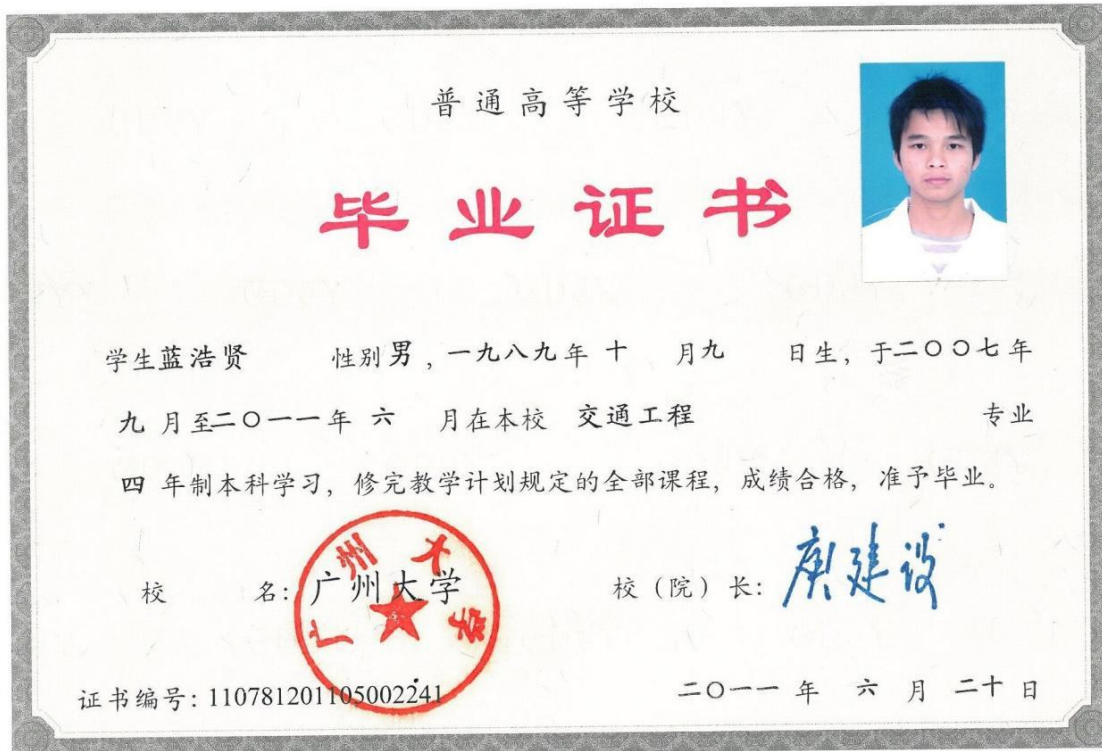 普通高等学校
毕业证书
学生蓝浩贤 性别男,一九八九年十月九日生,于二〇〇七年
九月至二〇一一年六月在本校 交通工程 专业
四年制本科学习,修完教学计划规定的全部课程,成绩合格,准予毕业。
校 名:广州大学 校(院)长:庾建设
广州大学
证书编号:110781201105002241 二〇一一年六月二十日